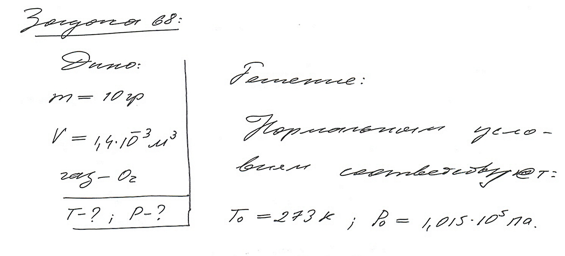 Задача 68:
Дано:
m = 10 гр
V = 1,4·10⁻³ м³
газ – O₂
T - ? ; P - ?
Решение:
Нормальным усло-
виям соответствует:
T₀ = 273 К ; P₀ = 1,015·10⁵ Па.